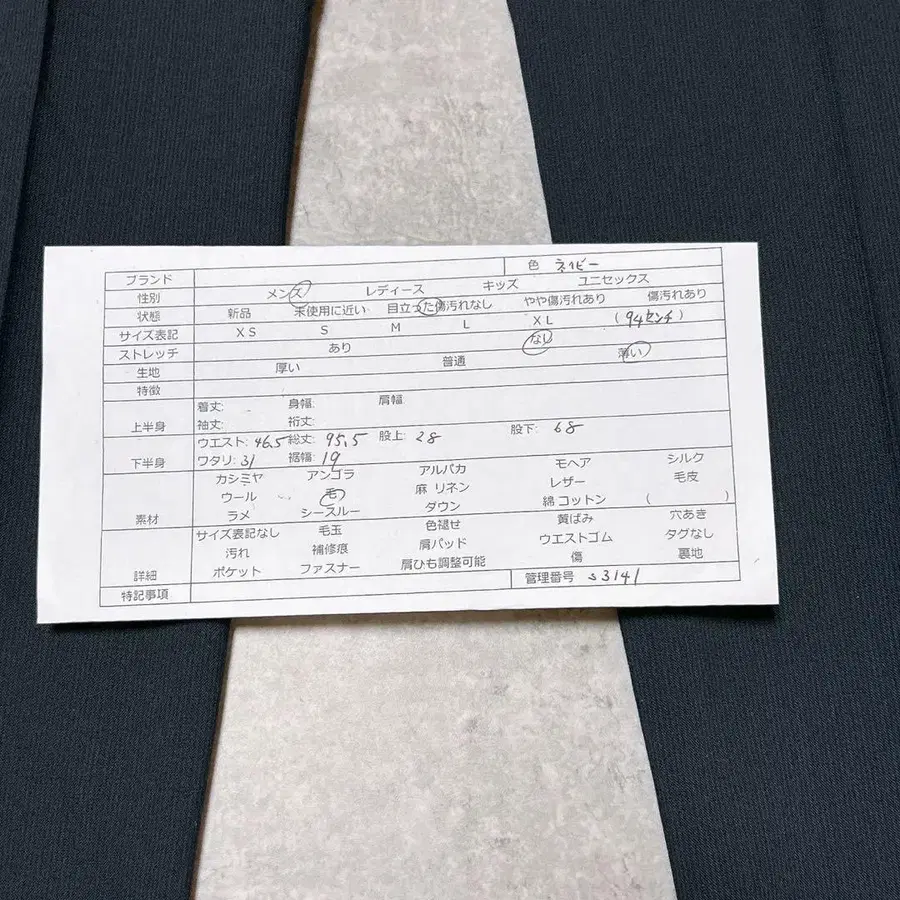 ブランド 色 ネイビー
性別 メンズ レディース キッズ ユニセックス
状態 新品 未使用に近い 目立った傷汚れなし やや傷汚れあり 傷汚れあり
サイズ表記 XS S M L XL (94センチ)
ストレッチ あり なし
生地 厚い 普通 薄い
特徴
上半身 着丈: 身幅: 肩幅
袖丈: 裄丈:
下半身 ウエスト: 46.5 総丈: 95.5 股上: 28 股下: 68
ワタリ: 31 裾幅: 19
素材 カシミヤ アンゴラ アルパカ モヘア シルク
ウール 毛 麻 リネン レザー 毛皮
ラメ シースルー ダウン 綿 コットン ( )
詳細 サイズ表記なし 毛玉 色褪せ 黄ばみ 穴あき
汚れ 補修痕 肩パッド ウエストゴム タグなし
ポケット ファスナー 肩ひも調整可能 傷 裏地
特記事項 管理番号 s3141